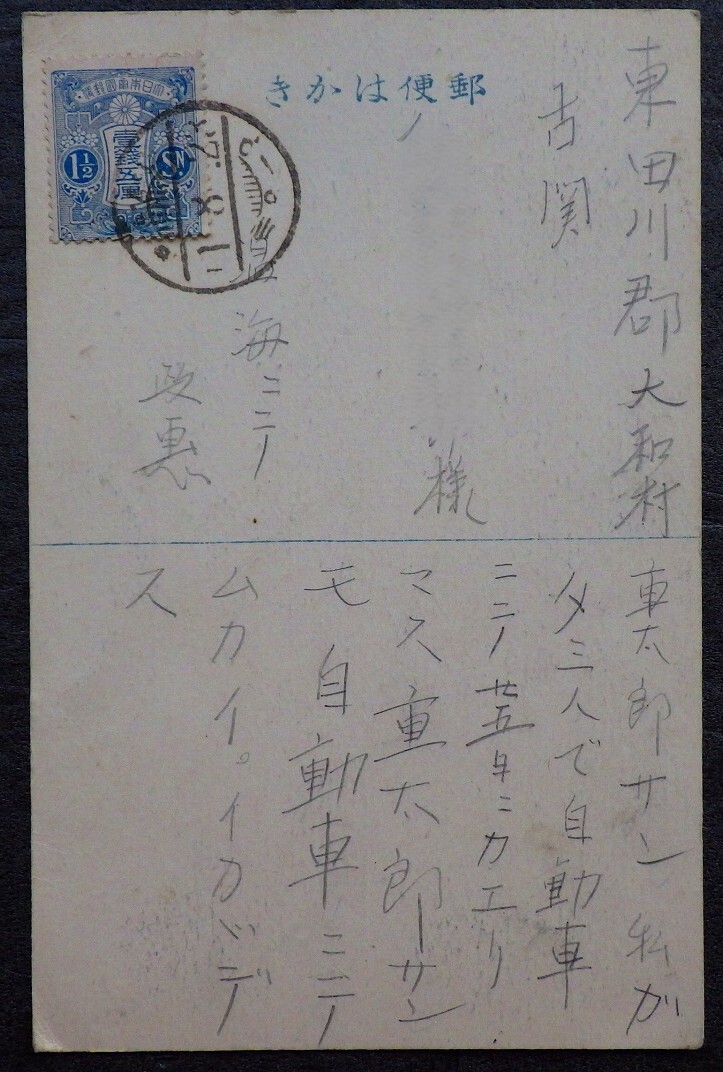 郵便はかき
大日本帝國郵便
壹錢五厘
1½ SN
東田川郡大和村
古関
様
海ニテ
政惠
重太郎サン 私が
タ三人で自動車
ニテ廿五日ニカエリ
マス重太郎サン
モ自動車ニテ
ムカイ。イカガデ
ス